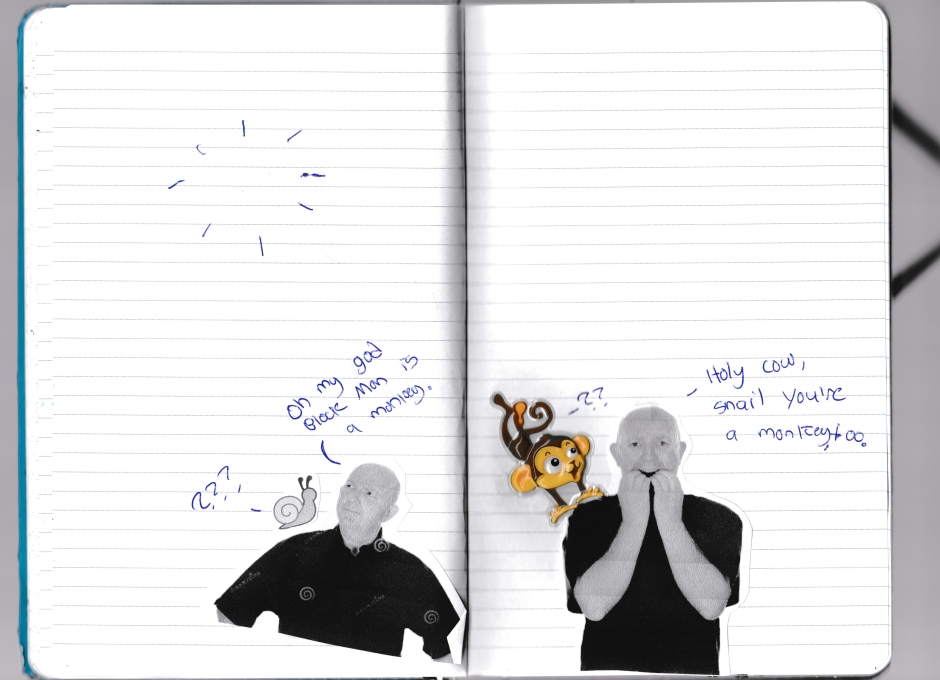 Oh my god
Black Man is
a monkey.
???
??
Holy cow,
snail you're
a monkey too.